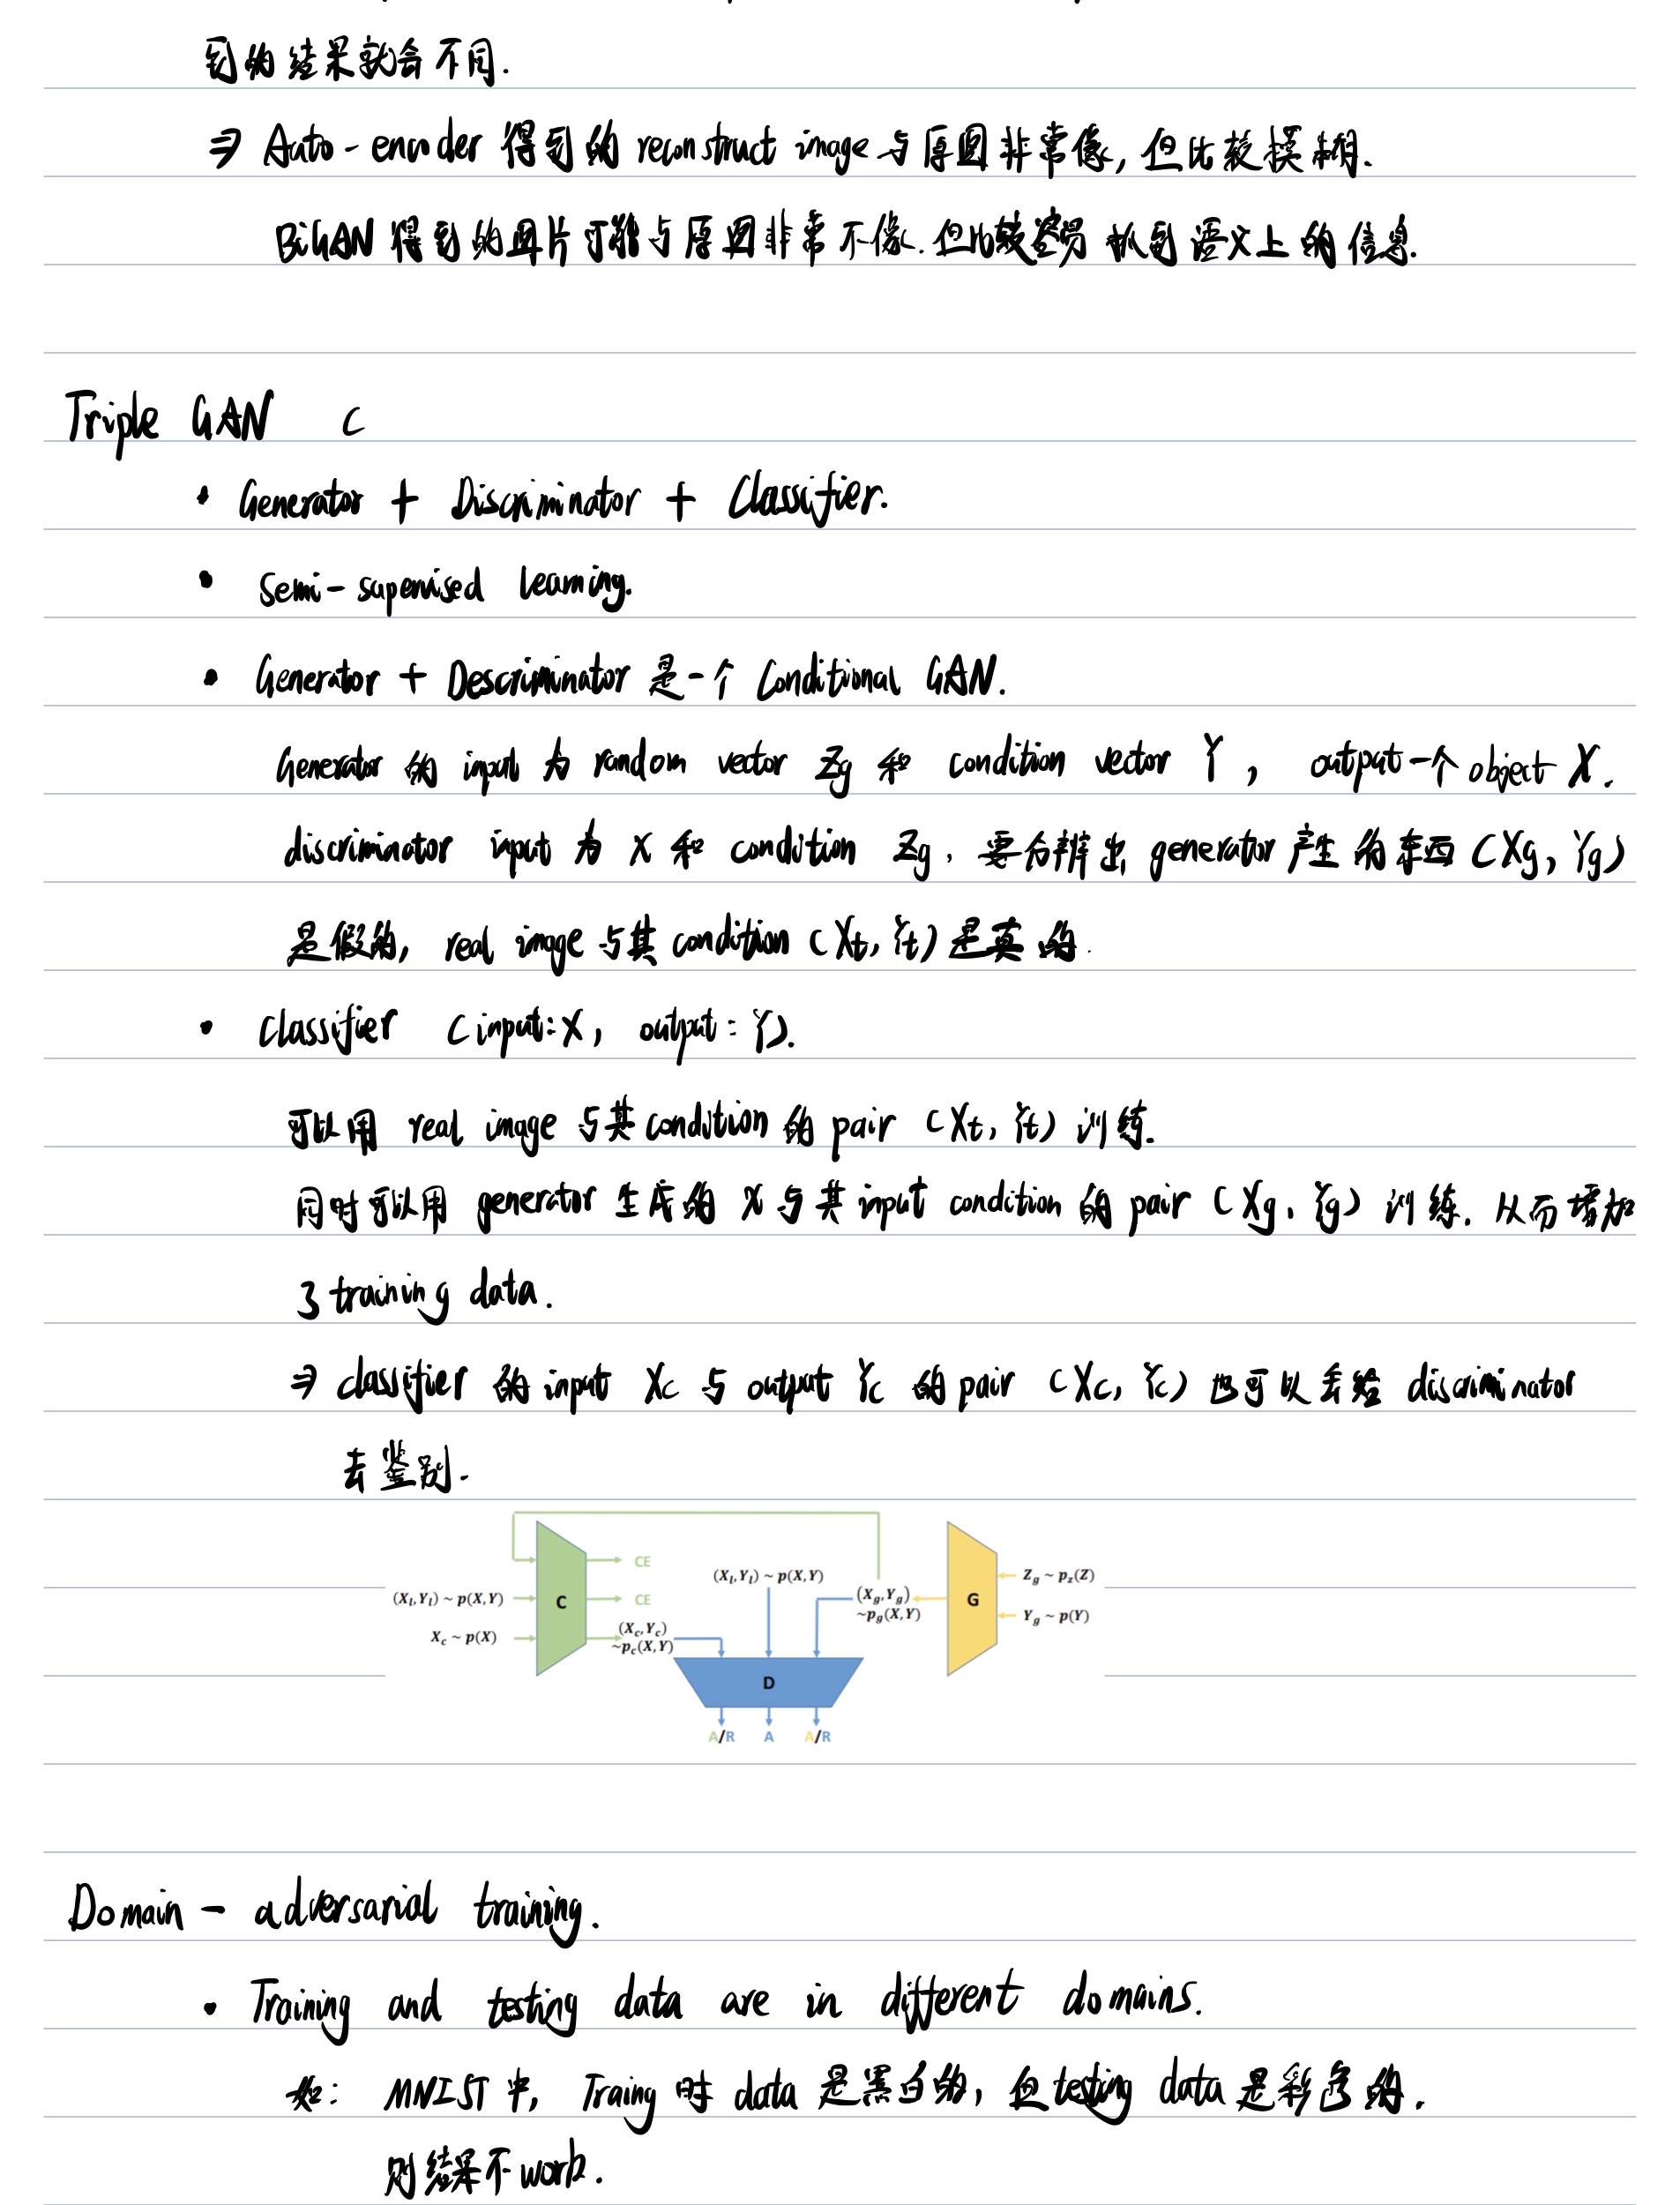 到的结果就会不同.
⇒ Auto-encoder 得到的 reconstruct image 与原图非常像, 但比较模糊.
BiGAN 得到的图片可能与原图非常不像. 但比较容易抓到语义上的信息.
Triple GAN C
• Generator + Discriminator + Classifier.
• Semi-supervised learning.
• Generator + Descriminator 是一个 Conditional GAN.
Generator 的 input 为 random vector Zg 和 condition vector Y, output 一个 object X.
discriminator input 为 X 和 condition Zg, 要分辨出 generator 产生的东西 (Xg, Yg)
是假的, real image 与其 condition (Xt, Yt) 是真的.
• classifier (input: X, output: Y).
可以用 real image 与其 condition 的 pair (Xt, Yt) 训练.
同时可以用 generator 生成的 X 与其 input condition 的 pair (Xg, Yg) 训练. 从而增加
了 training data.
⇒ classifier 的 input Xc 与 output Yc 的 pair (Xc, Yc) 也可以丢给 discriminator
去鉴别.
CE
(Xl,Yl) ~ p(X,Y) C CE
Xc ~ p(X)
(Xc,Yc)
~pc(X,Y)
(Xl,Yl) ~ p(X,Y)
(Xg,Yg)
~pg(X,Y)
G
Zg ~ pz(Z)
Yg ~ p(Y)
D
A/R A A/R
Domain - adversarial training.
• Training and testing data are in different domains.
如: MNIST 中, Traing 时 data 是黑白的, 但 testing data 是彩色的.
则结果不 work.